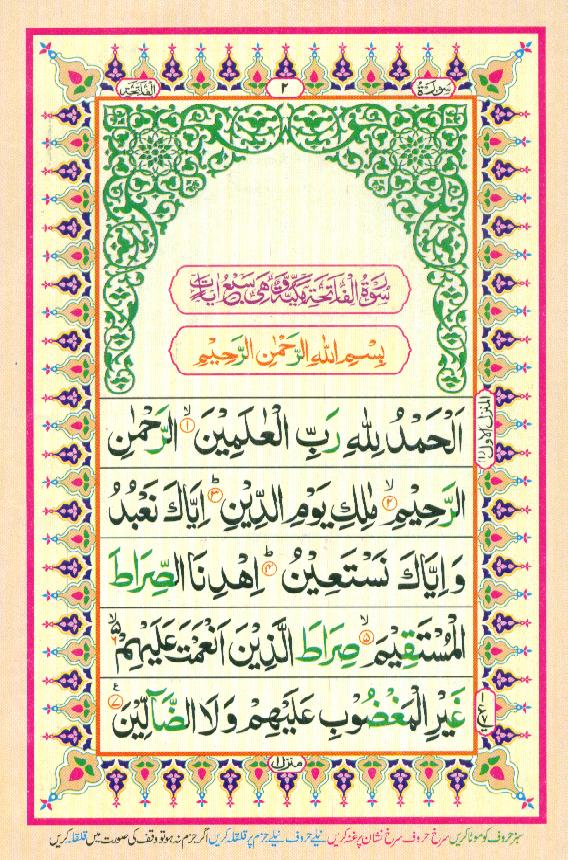 سورۃ ۲ الفاتحۃ
سُوْرَةُ الْفَاتِحَةِ مَكِّيَّةٌ وَّهِیَ سَبْعُ اٰیَاتٍ
بِسْمِ اللّٰهِ الرَّحْمٰنِ الرَّحِیْمِ
اَلْحَمْدُ لِلّٰهِ رَبِّ الْعٰلَمِیْنَ ۙ۱ الرَّحْمٰنِ
الرَّحِیْمِ ۙ۲ مٰلِكِ یَوْمِ الدِّیْنِ ؕ۳ اِیَّاكَ نَعْبُدُ
وَ اِیَّاكَ نَسْتَعِیْنُ ؕ۴ اِهْدِنَا الصِّرَاطَ
الْمُسْتَقِیْمَ ۙ۵ صِرَاطَ الَّذِیْنَ اَنْعَمْتَ عَلَیْهِمْ ۙ۬۶
غَیْرِ الْمَغْضُوْبِ عَلَیْهِمْ وَ لَا الضَّآلِّیْنَ ۠۷
المنزل الاول
منزل ۱
سبز حروف کو موٹا کریں سرخ حروف سرخ نشان پر غنہ کریں نیلے حروف نیلے جزم پر قلقلہ کریں اگر جزم نہ ہو تو وقف کی صورت میں قلقلہ کریں